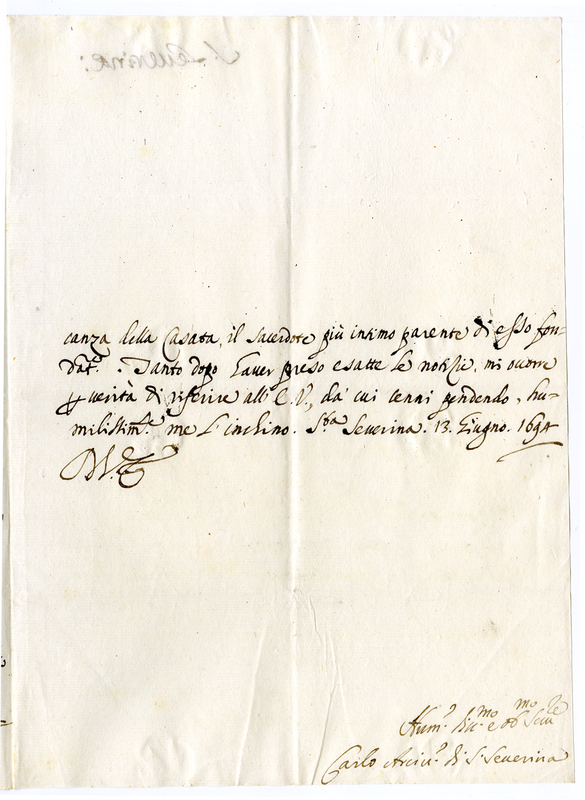 S. Severina:
canza della Casata, il sacerdote più intimo parente di esso fon-
dat.e . Tanto dopo haver preso esatte le notizie, mi occorre
verità di riferire all' E.V., da' cui cenni pendendo, hu-
milissim.te me l' inchino. S.ta Severina. 13. Giugno. 1694
Hum.o Div.mo e Ob.mo Ser.re
Carlo Arciv.o di S. Severina